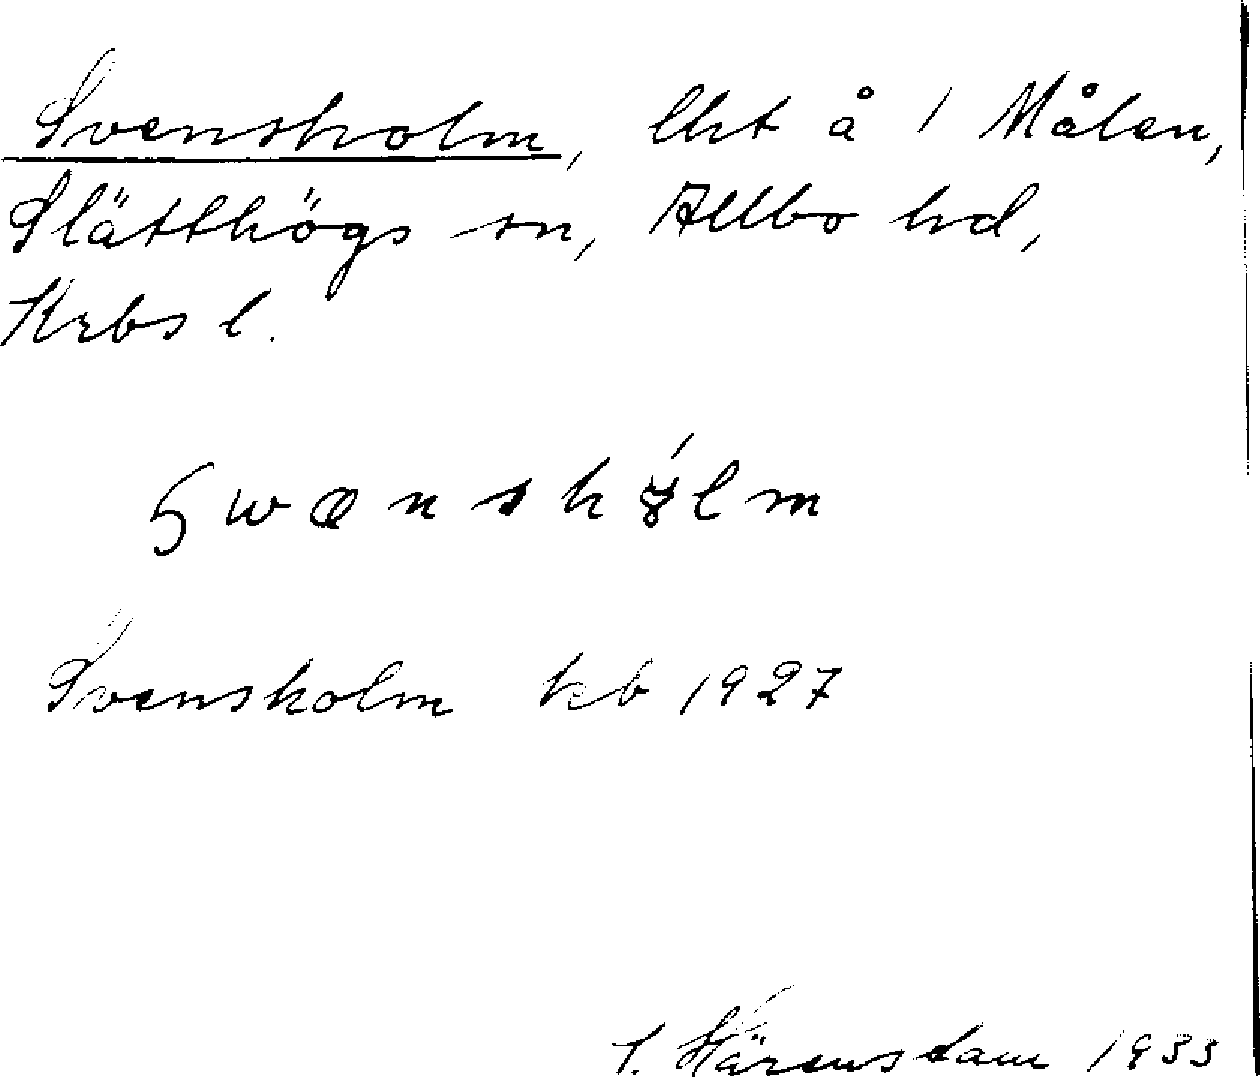 Svensholm, lht å 1 Målen,
Slätthögs sn, Allbo hd,
Krbs l.
Swænshølm
Svensholm kb 1927
1933